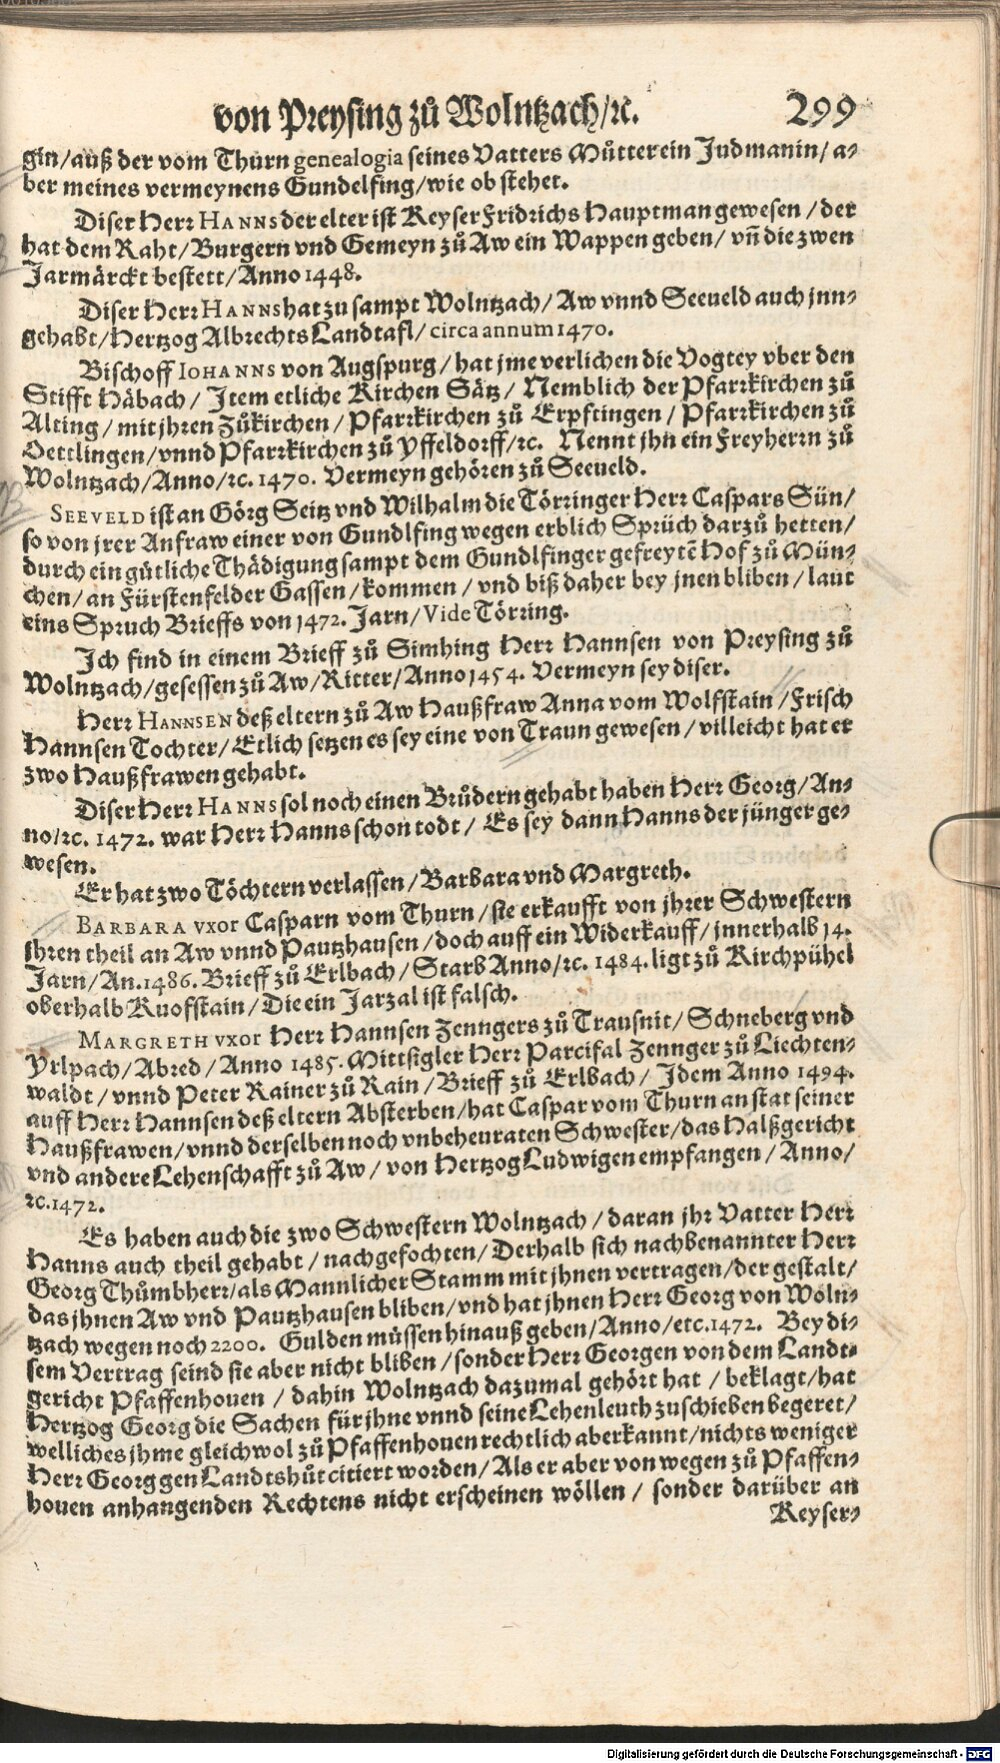 von Preysing zů Wolntzach/ꝛc. 299
gin/auß der vom Thurn genealogia seines Vatters Můtter ein Judmanin/a⸗
ber meines vermeynens Gundelfing/wie ob stehet.
Diser Herr HANNS der elter ist Keyser Fridrichs Hauptman gewesen/der
hat dem Raht/Burgern vnd Gemeyn zů Aw ein Wappen geben/vñ die zwen
Jarmärckt bestett/Anno 1448.
Diser Herr HANNS hat zu sampt Wolntzach/Aw vnnd Seeueld auch jnn⸗
gehabt/Hertzog Albrechts Landtafl/circa annum 1470.
Bischoff IOHANNS von Augspurg/hat jme verlichen die Vogtey vber den
Stifft Häbach/Item etliche Kirchen Sätz/Nemblich der Pfarrkirchen zů
Alting/mit jhren Zůkirchen/Pfarrkirchen zů Erpftingen/Pfarrkirchen zů
Oettlingen/vnnd Pfarrkirchen zů Yffeldorff/ꝛc. Nennt jhn ein Freyherrn zů
Wolntzach/Anno/ꝛc. 1470. Vermeyn gehören zů Seeueld.
SEEVELD ist an Görg Seitz vnd Wilhalm die Törringer Herr Caspars Sün/
so von jrer Anfraw einer von Gundlfing wegen erblich Sprüch darzů hetten/
durch ein gütliche Thädigung sampt dem Gundlfinger gefreytẽ Hof zů Mün⸗
chen/an Fürstenfelder Gassen/kommen/vnd biß daher bey jnen bliben/laut
eins Spruch Brieffs von 1472. Jarn/Vide Törring.
Ich find in einem Brieff zů Simhing Herr Hannsen von Preysing zů
Wolntzach/gesessen zů Aw/Ritter/Anno 1454. Vermeyn sey diser.
Herr HANNSEN deß eltern zů Aw Haußfraw Anna vom Wolfstain/Frisch
Hannsen Tochter/Etlich setzen es sey eine von Traun gewesen/villeicht hat er
zwo Haußfrawen gehabt.
Diser Herr HANNS sol noch einen Brůdern gehabt haben Herr Georg/An⸗
no/ꝛc. 1472. war Herr Hanns schon todt/Es sey dann Hanns der jünger ge⸗
wesen.
Er hat zwo Töchtern verlassen/Barbara vnd Margreth.
BARBARA vxor Casparn vom Thurn/sie erkaufft von jhrer Schwestern
jhren theil an Aw vnnd Pautzhausen/doch auff ein Widerkauff/jnnerhalb 14.
Jarn/An. 1486. Brieff zů Erlbach/Starb Anno/ꝛc. 1484. ligt zů Kirchpühel
oberhalb Kuofstain/Die ein Jarzal ist falsch.
MARGRETH vxor Herr Hannsen Zenngers zů Trausnit/Schneberg vnd
Yrlpach/Abred/Anno 1485. Mittsigler Herr Parcifal Zennger zů Liechten⸗
waldt/vnnd Peter Rainer zů Rain/Brieff zů Erlbach/Idem Anno 1494.
auff Herr Hannsen deß eltern Absterben/hat Caspar vom Thurn an stat seiner
Haußfrawen/vnnd derselben noch vnbeheuraten Schwester/das Halßgericht
vnd andere Lehenschafft zů Aw/von Hertzog Ludwigen empfangen/Anno/
ꝛc. 1472.
Es haben auch die zwo Schwestern Wolntzach/daran jhr Vatter Herr
Hanns auch theil gehabt/nachgefochten/Derhalb sich nachbenannter Herr
Georg Thůmbherr/als Mannlicher Stamm mit jhnen vertragen/der gestalt/
das jhnen Aw vnd Pautzhausen bliben/vnd hat jhnen Herr Georg von Woln⸗
tzach wegen noch 2200. Gulden müssen hinauß geben/Anno/etc. 1472. Bey di⸗
sem Vertrag seind sie aber nicht bliben/sonder Herr Georgen von dem Landt⸗
gericht Pfaffenhouen/dahin Wolntzach dazumal gehört hat/beklagt/hat
Hertzog Georg die Sachen für jhne vnnd seine Lehenleuth zuschieben begeret/
welliches jhme gleichwol zů Pfaffenhouen rechtlich aberkannt/nichts weniger
Herr Georg gen Landtshůt citiert worden/Als er aber von wegen zů Pfaffen⸗
houen anhangenden Rechtens nicht erscheinen wöllen/sonder darüber an
Keyser⸗
Digitalisierung gefördert durch die Deutsche Forschungsgemeinschaft - DFG